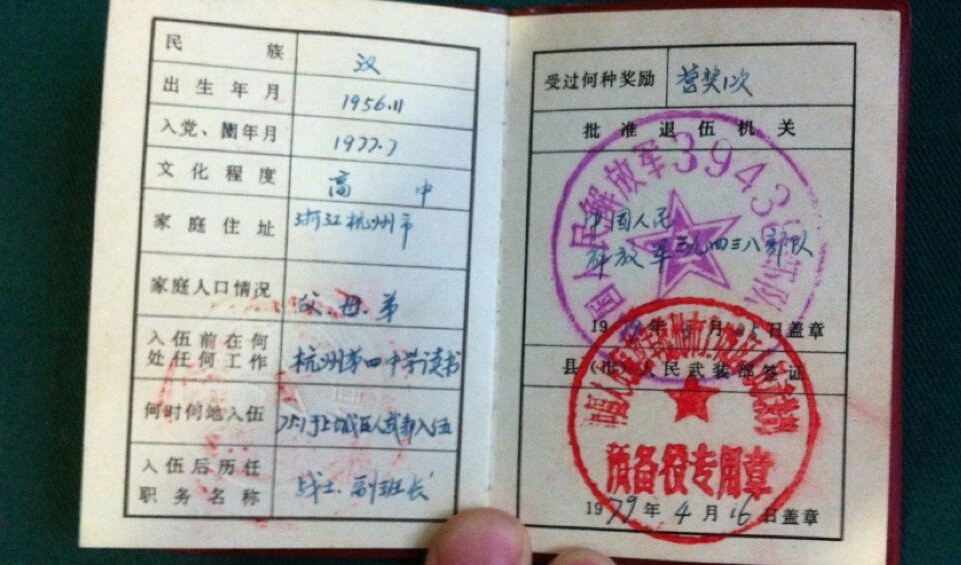 民族 汉
出生年月 1956.11
入党、团年月 1977.7
文化程度 高中
家庭住址 浙江杭州市
家庭人口情况 父.母.弟
入伍前在何
处任何工作 杭州第四中学读书
何时何地入伍 75.1于上城区人武部入伍
入伍后历任
职务名称 战士.副班长
受过何种奖励 营奖1次
批准退伍机关
中国人民
解放军三九四三八部队
国人民解放军39438部队
日盖章
县(市)人民武装部签证
预备役专用章
1979年4月16日盖章